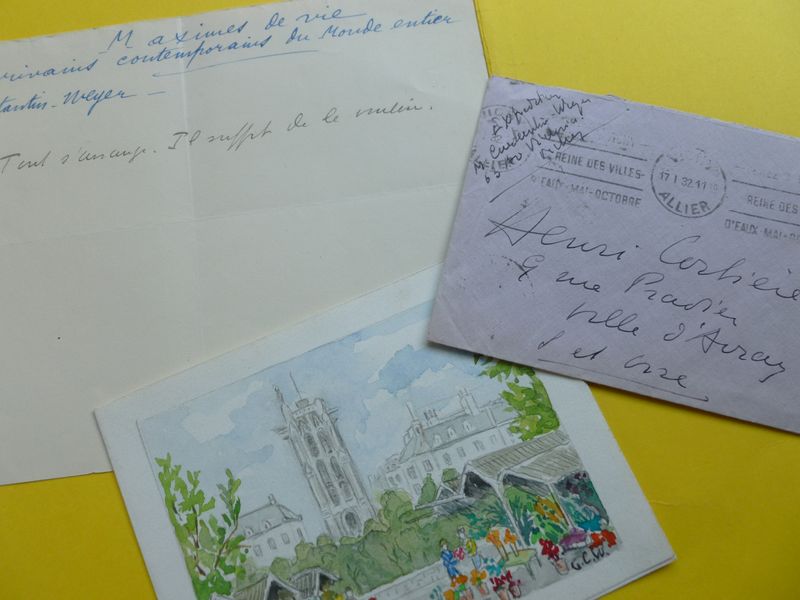 Maximes de vie
crivains contemporains du Monde entier
tantin-Weyer —
Tout s'arrange. Il suffit de le vouloir.
Expéditeur
Weyer
Vichy
REINE DES VILLES-
D'EAUX-MAI-OCTOBRE
17 1 32
ALLIER
REINE DES
D'EAUX-MAI-OC
Henri Corbière
9 rue Pradier
Ville d'Avray
S et Oise
G.C.W.